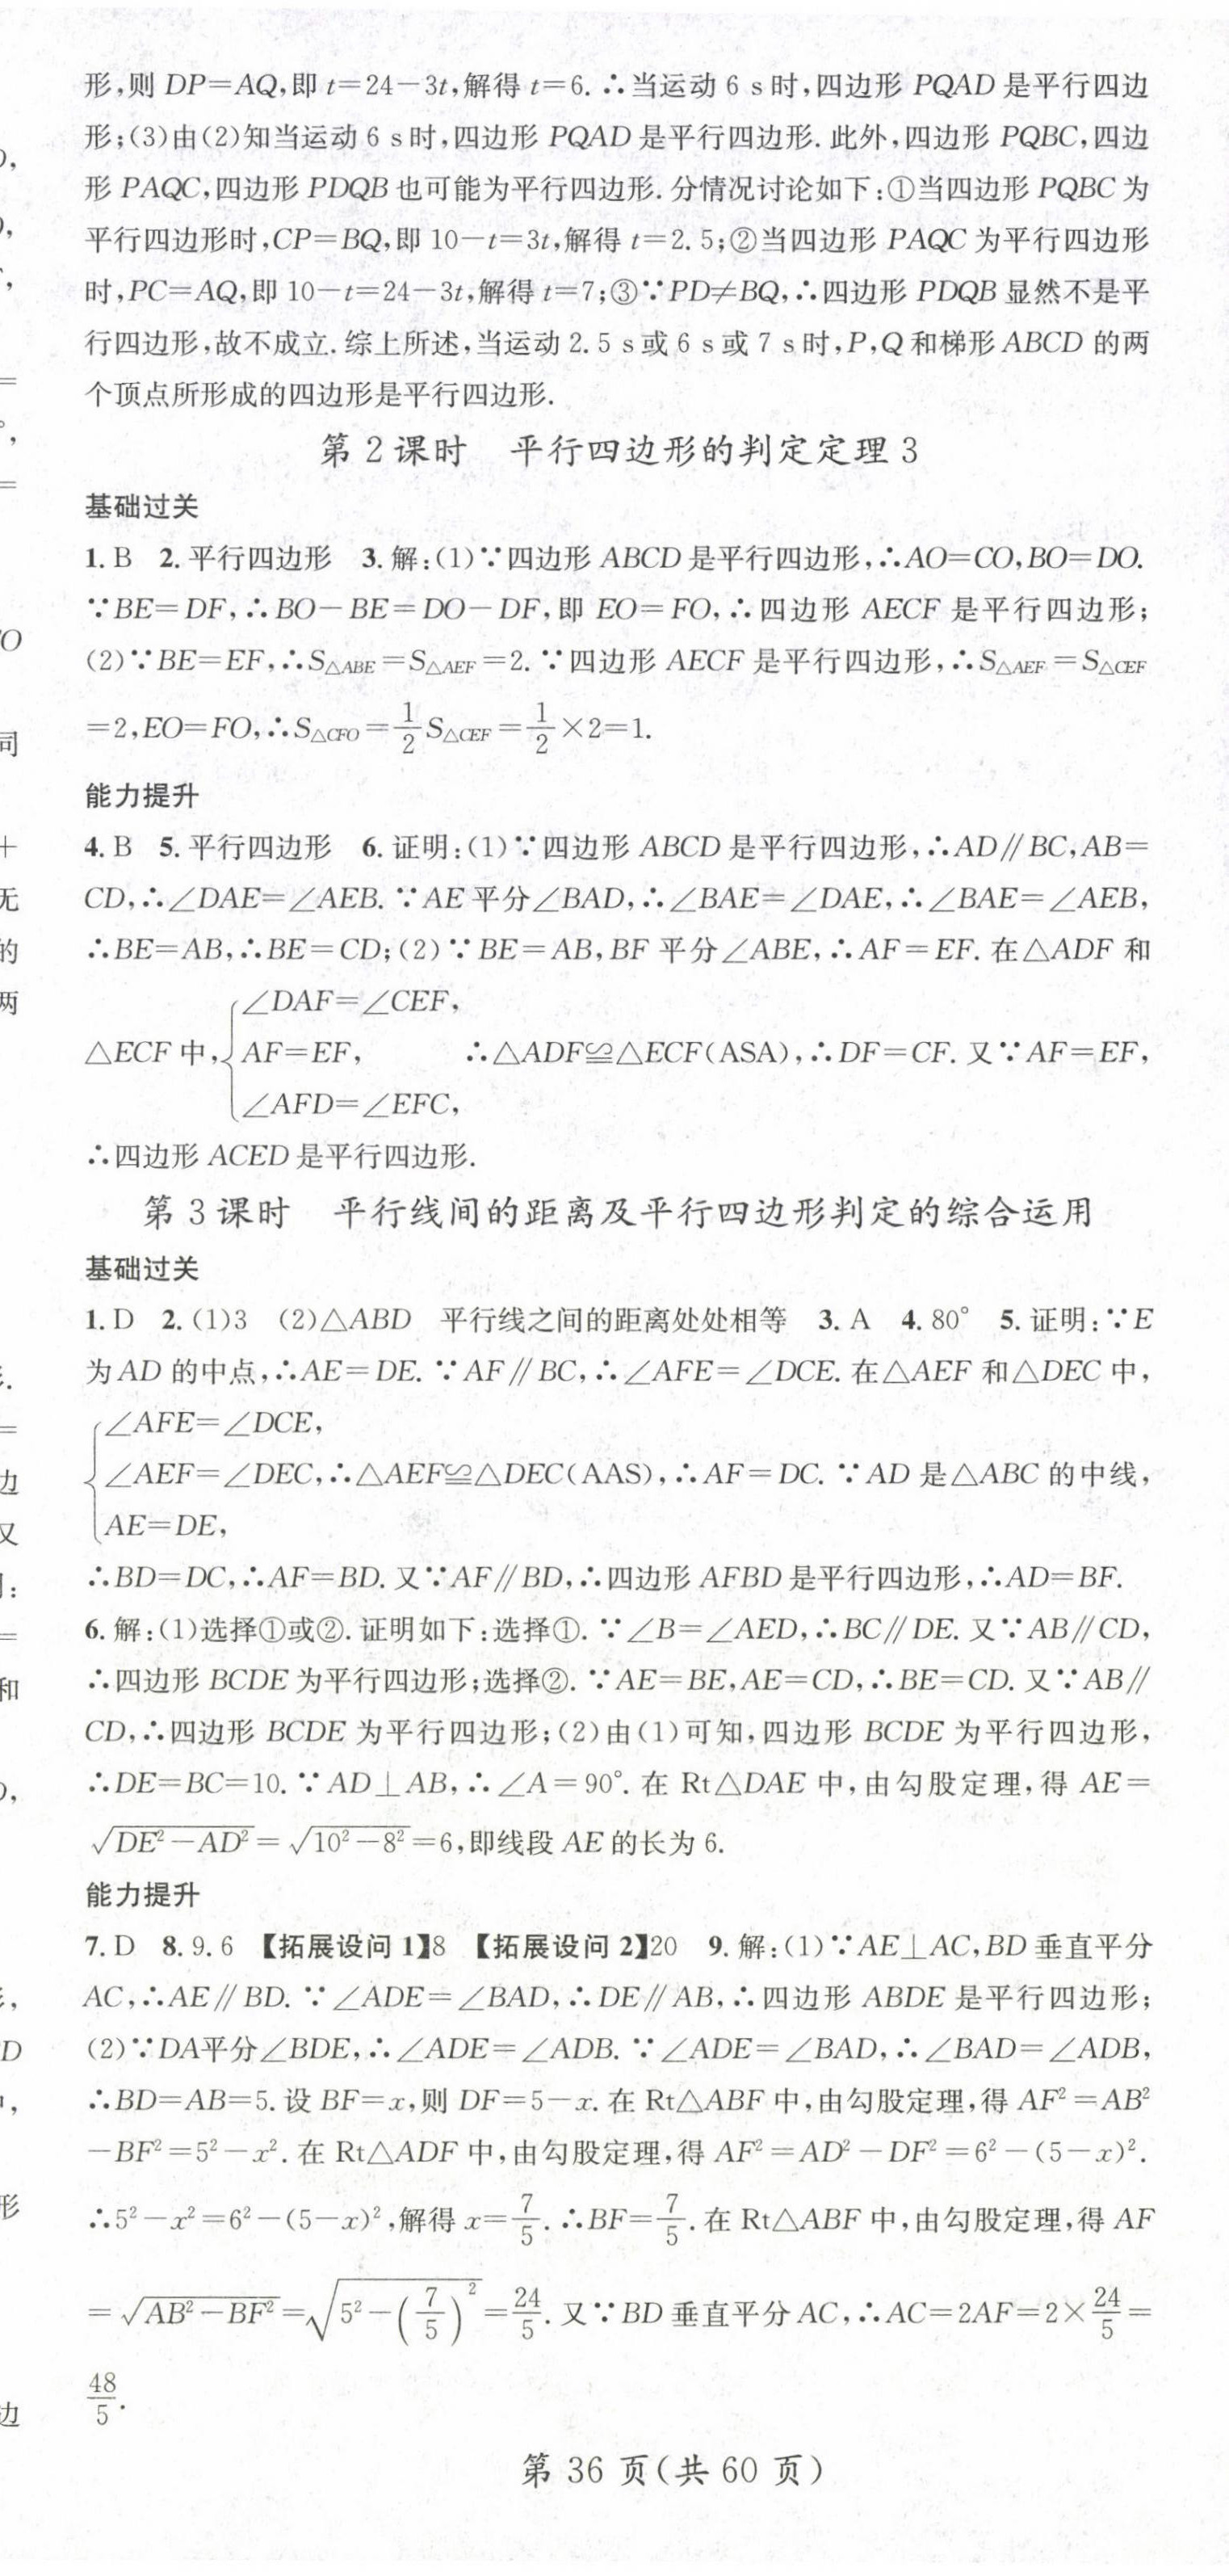 形,则 DP=AQ,即 t=24-3t,解得 t=6. ∴当运动 6 s 时,四边形 PQAD 是平行四边
形;(3)由(2)知当运动 6 s 时,四边形 PQAD 是平行四边形. 此外,四边形 PQBC,四边
形 PAQC,四边形 PDQB 也可能为平行四边形. 分情况讨论如下:①当四边形 PQBC 为
平行四边形时,CP=BQ,即 10-t=3t,解得 t=2.5;②当四边形 PAQC 为平行四边形
时,PC=AQ,即 10-t=24-3t,解得 t=7;③∵PD≠BQ,∴四边形 PDQB 显然不是平
行四边形,故不成立. 综上所述,当运动 2.5 s 或 6 s 或 7 s 时,P,Q 和梯形 ABCD 的两
个顶点所形成的四边形是平行四边形.
第 2 课时 平行四边形的判定定理 3
基础过关
1. B 2. 平行四边形 3. 解:(1)∵四边形 ABCD 是平行四边形,∴AO=CO,BO=DO.
∵BE=DF,∴BO-BE=DO-DF,即 EO=FO,∴四边形 AECF 是平行四边形;
(2)∵BE=EF,∴S△ABE=S△AEF=2. ∵四边形 AECF 是平行四边形,∴S△AEF=S△CEF
=2,EO=FO,∴S△CFO=1/2 S△CEF=1/2×2=1.
能力提升
4. B 5. 平行四边形 6. 证明:(1)∵四边形 ABCD 是平行四边形,∴AD∥BC,AB=
CD,∴∠DAE=∠AEB. ∵AE 平分∠BAD,∴∠BAE=∠DAE,∴∠BAE=∠AEB,
∴BE=AB,∴BE=CD;(2)∵BE=AB,BF 平分∠ABE,∴AF=EF. 在△ADF 和
∠DAF=∠CEF,
△ECF 中,{AF=EF, ∴△ADF≌△ECF(ASA),∴DF=CF. 又∵AF=EF,
∠AFD=∠EFC,
∴四边形 ACED 是平行四边形.
第 3 课时 平行线间的距离及平行四边形判定的综合运用
基础过关
1. D 2. (1)3 (2)△ABD 平行线之间的距离处处相等 3. A 4. 80° 5. 证明:∵E
为 AD 的中点,∴AE=DE. ∵AF∥BC,∴∠AFE=∠DCE. 在△AEF 和△DEC 中,
∠AFE=∠DCE,
{∠AEF=∠DEC,∴△AEF≌△DEC(AAS),∴AF=DC. ∵AD 是△ABC 的中线,
AE=DE,
∴BD=DC,∴AF=BD. 又∵AF∥BD,∴四边形 AFBD 是平行四边形,∴AD=BF.
6. 解:(1)选择①或②. 证明如下:选择①. ∵∠B=∠AED,∴BC∥DE. 又∵AB∥CD,
∴四边形 BCDE 为平行四边形;选择②. ∵AE=BE,AE=CD,∴BE=CD. 又∵AB∥
CD,∴四边形 BCDE 为平行四边形;(2)由(1)可知,四边形 BCDE 为平行四边形,
∴DE=BC=10. ∵AD⊥AB,∴∠A=90°. 在 Rt△DAE 中,由勾股定理,得 AE=
√(DE²-AD²)=√(10²-8²)=6,即线段 AE 的长为 6.
能力提升
7. D 8. 9.6 【拓展设问 1】8 【拓展设问 2】20 9. 解:(1)∵AE⊥AC,BD 垂直平分
AC,∴AE∥BD. ∵∠ADE=∠BAD,∴DE∥AB,∴四边形 ABDE 是平行四边形;
(2)∵DA平分∠BDE,∴∠ADE=∠ADB. ∵∠ADE=∠BAD,∴∠BAD=∠ADB,
∴BD=AB=5. 设 BF=x,则 DF=5-x. 在 Rt△ABF 中,由勾股定理,得 AF²=AB²
-BF²=5²-x². 在 Rt△ADF 中,由勾股定理,得 AF²=AD²-DF²=6²-(5-x)².
∴5²-x²=6²-(5-x)²,解得 x=7/5. ∴BF=7/5. 在 Rt△ABF 中,由勾股定理,得 AF
=√(AB²-BF²)=√(5²-(7/5)²)=24/5. 又∵BD 垂直平分 AC,∴AC=2AF=2×24/5=
48/5.
第 36 页(共 60 页)